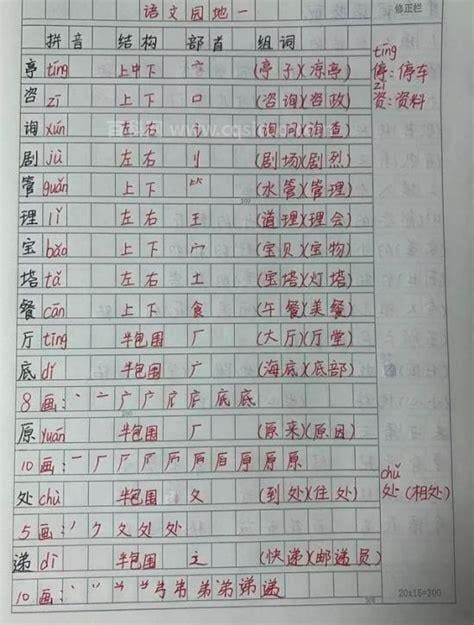 语文园地一
修正栏
拼音 结构 部首 组词
亭 tíng 上中下 亠 (亭子)(凉亭) tíng 停:停车
咨 zī 上下 口 (咨询)(咨政) zī 资:资料
询 xún 左右 讠 (询问)(询查)
剧 jù 左右 刂 (剧场)(剧烈)
管 guǎn 上下 ⺮ (水管)(管理)
理 lǐ 左右 王 (道理)(理会)
宝 bǎo 上下 宀 (宝贝)(宝物)
塔 tǎ 左右 土 (宝塔)(灯塔)
餐 cān 上下 食 (午餐)(美餐)
厅 tīng 半包围 厂 (大厅)(厅堂)
底 dǐ 半包围 广 (海底)(底部)
8画:丶 亠 广 庐 底 底
原 yuán 半包围 厂 (原来)(原因)
10画:一 厂 原 原
处 chù 半包围 夂 (到处)(住处) chǔ 处(相处)
5画:丿 ク 夂 处 处
递 dì 半包围 辶 (快递)(邮递员)
10画:丶 弟 弟 递 递
20x15=300